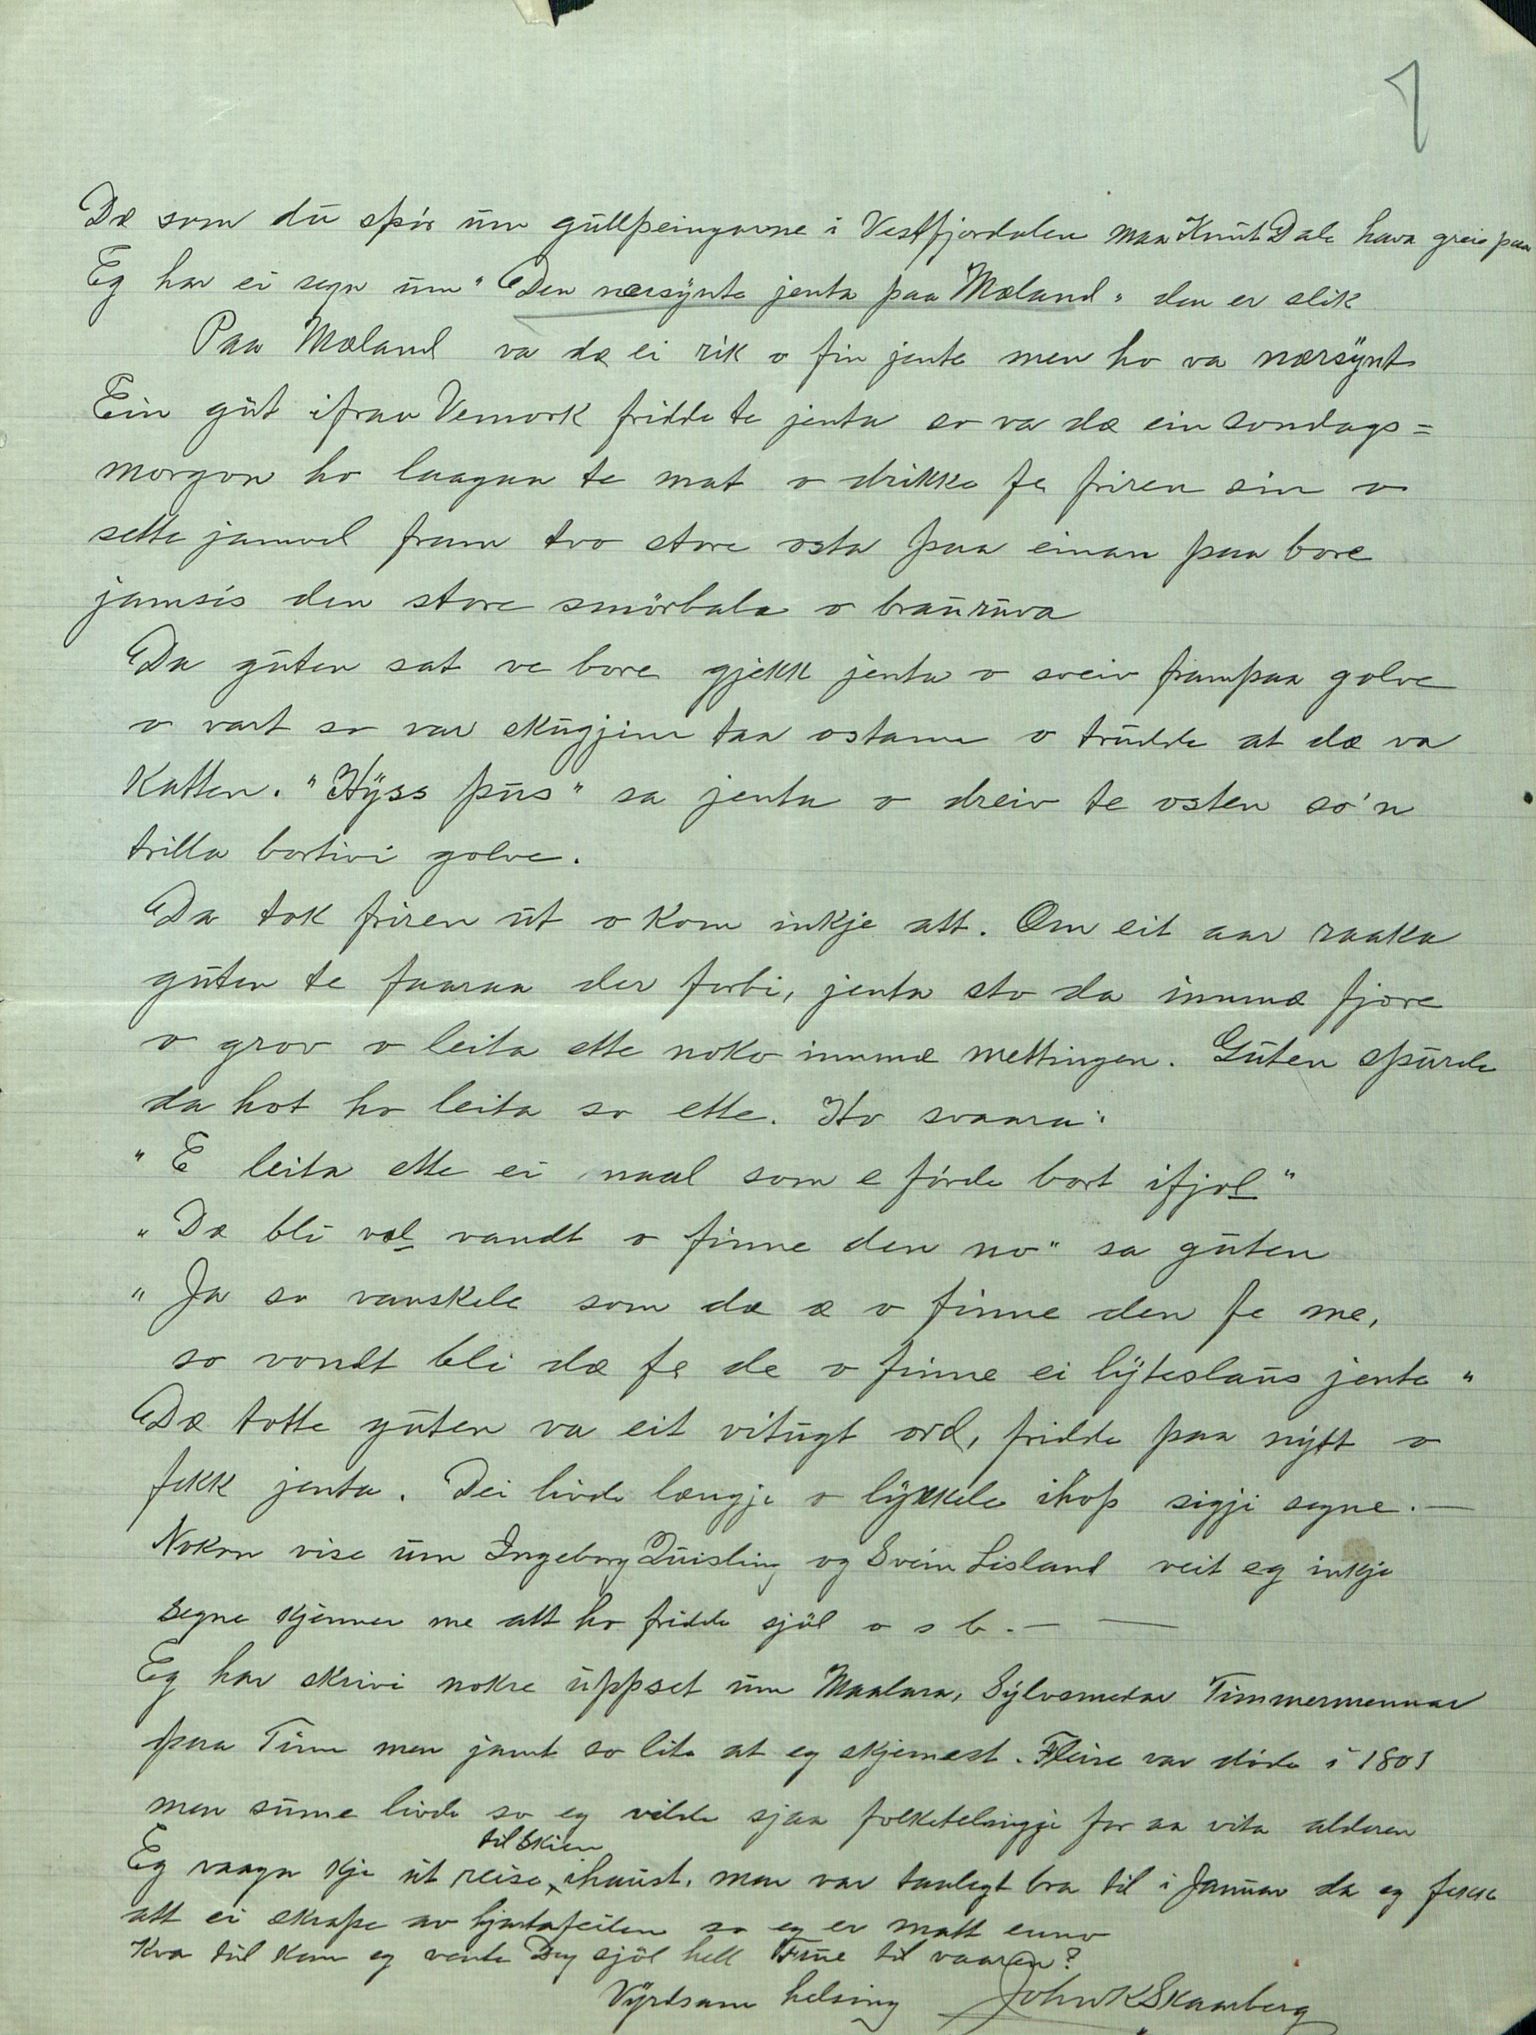 1
Dæ som du spør um gullpeingarne i Vestfjordalen maa Knut Dale hava greie paa
Eg har ei segn um "Den nærsynte jenta paa Mæland" den er slik
Paa Mæland va dæ ei rik o fin jente men ho va nærsynt
Ein gut ifraa Vemork fridde te jenta so va dæ ein sondags=
morgon ho laagaa te mat o drikke fe friren sin o
sette jamvel fram tvo store osta paa einan paa bore
jamsis den store smörbala o brauruva
Da guten sat ve bore gjekk jenta o sveiv frampaa golve
o vart so var skugjin taa ostann o trudde at dæ va
Katten. "Hyss pus" sa jenta o dreiv te osten so'n
trilla bortivi golve.
Da tok friren ut o kom inkje att. Om eit aar raaka
guten te faaraa der forbi, jenta sto da innmæ fjøre
o grov o leita ette noko innmæ mettingen. Guten spurde
da hot ho leita so ette. Ho svaara:
"E leita ette ei naal som e førde bort ifjol"
"Dæ bli væl vandt o finne den no" sa guten
"Ja so vanskele som dæ æ o finne den fe me,
so vondt bli dæ fe de o finne ei lyteslaus jente"
Dæ totte guten va eit vitugt ord, fridde paa nytt o
fekk jenta. Dei livde længje o lykkele ihop sigji segne. —
Nokon vise um Ingeborg Quisling og Svein Lisland veit eg inkje
segne kjenner me att ho fridde sjöl o s b. — —
Eg har skrivi nokre uppset um Maalara, Sylvsmedar Timmermennar
paa Tinn men jamt so lite at eg skjemest. Fleire var døde i 1801
men sume livde so eg vilde sjaa folketelingji for aa vita alderen
Eg vaaga kje ut reise til Skien ihaust, men var taalegt bra til i Januar da eg fekk
att ei skrape av hjartafeilen so eg er matt enno
Kva tid kan eg vente Deg sjöl hell Frue til vaaren?
Vyrdsam helsing John K Skaarberg